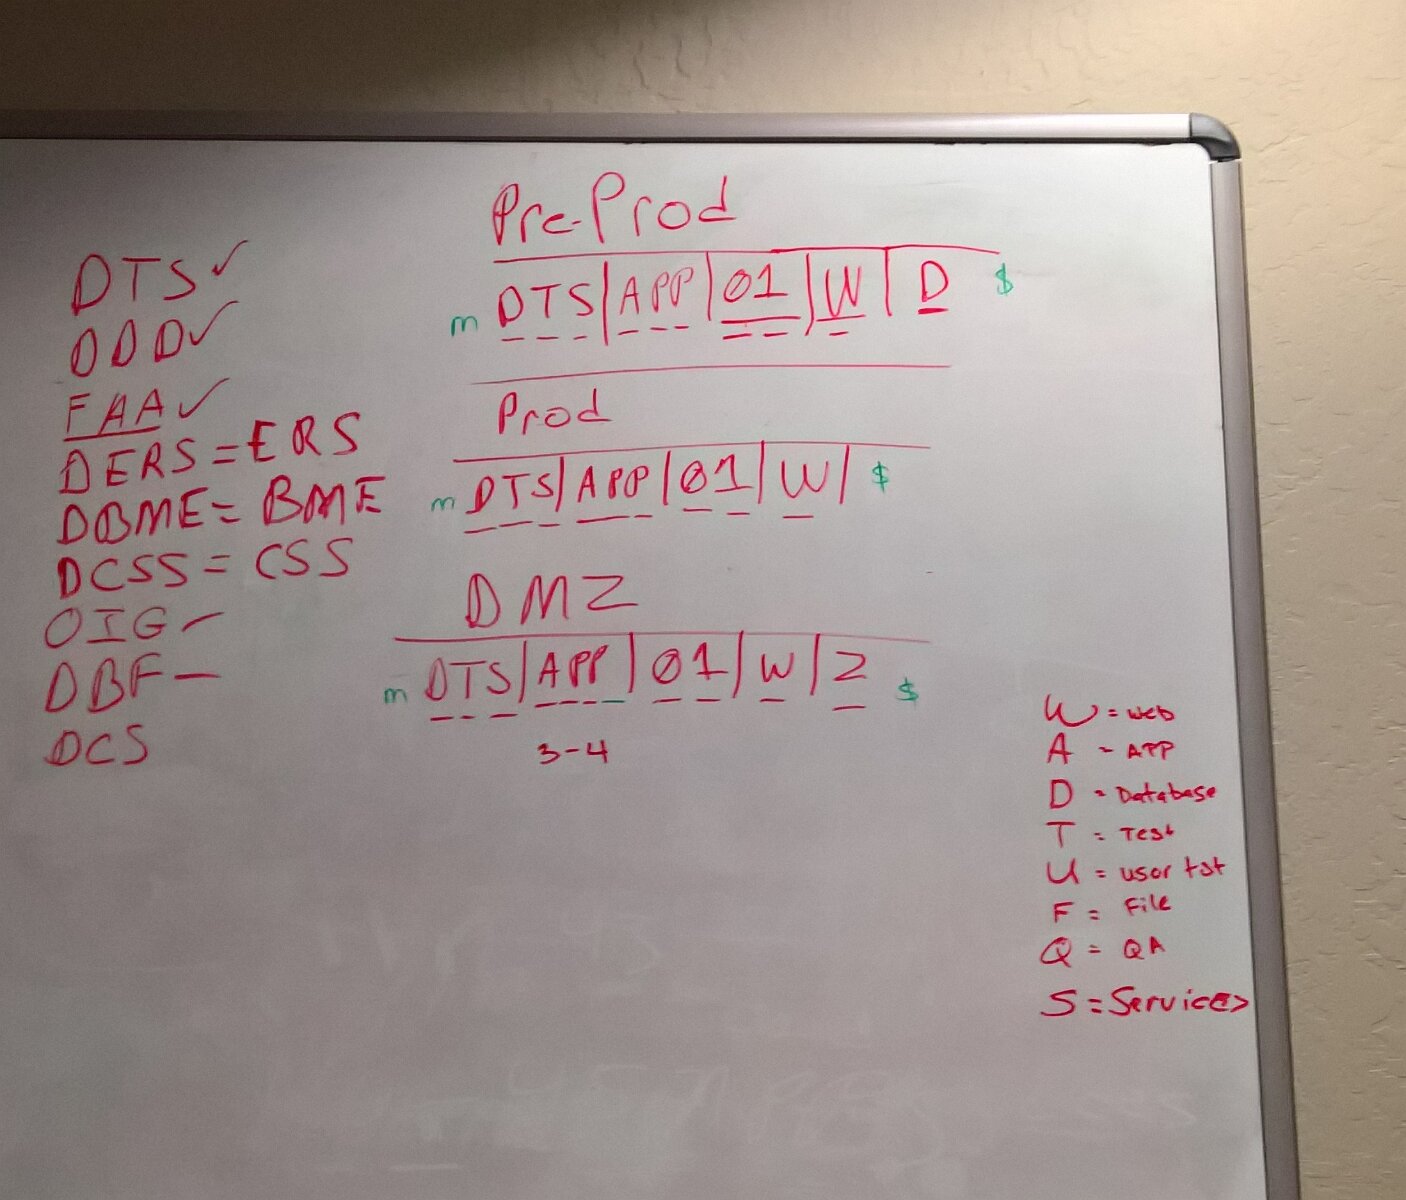 DTS✓
DDD✓
FAA✓
DERS = ERS
DBME = BME
DCSS = CSS
OIG –
DBF –
DCS
Pre-Prod
m DTS|APP|01|W|D $
Prod
m DTS|APP|01|W| $
DMZ
m DTS|APP|01|W|Z $
3-4
W = Web
A - APP
D - Database
T = Test
U = user tst
F = File
Q = QA
S = Services